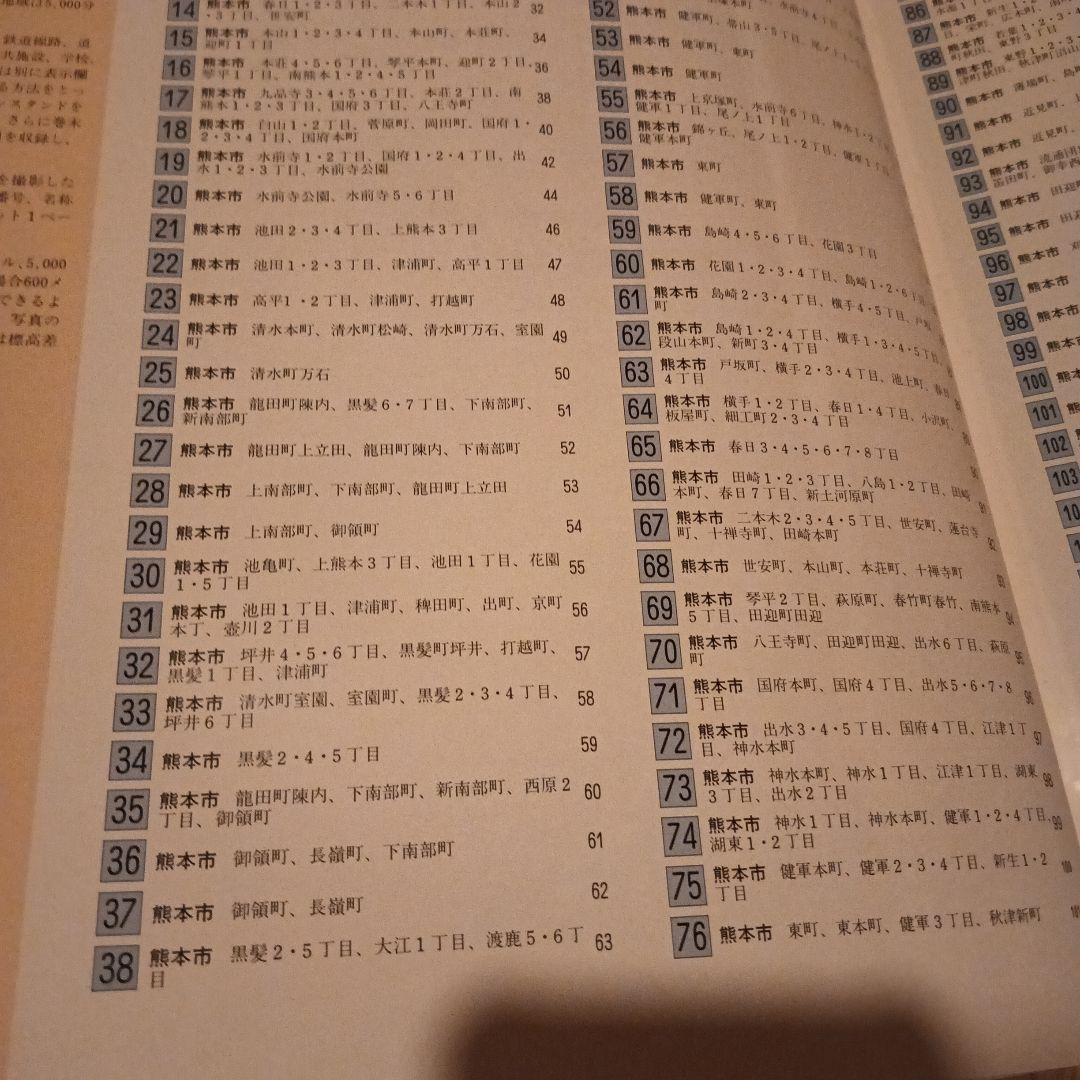 地域は5,000分
鉄道線路、道
共施設、学校、
は別に表示欄
る方法をとっ
ンスタンドを
さらに巻末
を収録し、
を撮影した
番号、名称
ット1ペー
ル、5,000
場合600メ
できるよ
写真の
は標高差
14 熊本市 春日1・2・3丁目、二本木1丁目、本山2
・3丁目、世安町 32
15 熊本市 本山1・2・3・4丁目、本山町、本荘町、
迎町1丁目 34
16 熊本市 本荘4・5・6丁目、琴平本町、迎町2丁目、
琴平1丁目、南熊本1・2・4・5丁目 36
17 熊本市 九品寺3・4・5・6丁目、本荘2丁目、南
熊本1・2・3丁目、国府3丁目、八王寺町 38
18 熊本市 白山1・2丁目、菅原町、岡田町、国府1・
2・3・4丁目、国府本町 40
19 熊本市 水前寺1・2丁目、国府1・2・4丁目、出
水1・2・3丁目、水前寺公園 42
20 熊本市 水前寺公園、水前寺5・6丁目 44
21 熊本市 池田2・3・4丁目、上熊本3丁目 46
22 熊本市 池田1・2・3丁目、津浦町、高平1丁目 47
23 熊本市 高平1・2丁目、津浦町、打越町 48
24 熊本市 清水本町、清水町松崎、清水町万石、室園
町 49
25 熊本市 清水町万石 50
26 熊本市 龍田町陳内、黒髪6・7丁目、下南部町、
新南部町 51
27 熊本市 龍田町上立田、龍田町陳内、下南部町 52
28 熊本市 上南部町、下南部町、龍田町上立田 53
29 熊本市 上南部町、御領町 54
30 熊本市 池亀町、上熊本3丁目、池田1丁目、花園
1・5丁目 55
31 熊本市 池田1丁目、津浦町、稗田町、出町、京町
本丁、壺川2丁目 56
32 熊本市 坪井4・5・6丁目、黒髪町坪井、打越町、
黒髪1丁目、津浦町 57
33 熊本市 清水町室園、室園町、黒髪2・3・4丁目、
坪井6丁目 58
34 熊本市 黒髪2・4・5丁目 59
35 熊本市 龍田町陳内、下南部町、新南部町、西原2
丁目、御領町 60
36 熊本市 御領町、長嶺町、下南部町 61
37 熊本市 御領町、長嶺町 62
38 熊本市 黒髪2・5丁目、大江1丁目、渡鹿5・6丁
目 63
52 熊本市 健軍町、帯山3・5丁目、尾ノ上
53 熊本市 健軍町、東町
54 熊本市 健軍町
55 熊本市 上京塚町、水前寺6丁目、神水1・2丁目
健軍1丁目、尾ノ上1丁目
56 熊本市 錦ヶ丘、尾ノ上1・2丁目、健軍1丁目
健軍本町
57 熊本市 東町
58 熊本市 健軍町、東町
59 熊本市 島崎4・5・6丁目、花園3丁目
60 熊本市 花園1・2・3・4丁目、島崎1・2・6丁目
61 熊本市 島崎2・3・4丁目、横手4・5丁目、戸坂
町
62 熊本市 島崎1・2・4丁目、横手1・3・4・5丁目、
段山本町、新町3・4丁目
63 熊本市 戸坂町、横手2・3・4丁目、池上町、春日
4丁目
64 熊本市 横手1・2丁目、春日1・4丁目、小沢町、
板屋町、細工町2・3・4丁目
65 熊本市 春日3・4・5・6・7・8丁目
66 熊本市 田崎1・2・3丁目、八島1・2丁目、田崎
本町、春日7丁目、新土河原町
67 熊本市 二本木2・3・4・5丁目、世安町、蓮台寺
町、十禅寺町、田崎本町 92
68 熊本市 世安町、本山町、本荘町、十禅寺町 93
69 熊本市 琴平2丁目、萩原町、春竹町春竹、南熊本
5丁目、田迎町田迎 94
70 熊本市 八王寺町、田迎町田迎、出水6丁目、萩原
町 95
71 熊本市 国府本町、国府4丁目、出水5・6・7・8
丁目 96
72 熊本市 出水3・4・5丁目、国府4丁目、江津1丁
目、神水本町 97
73 熊本市 神水本町、神水1丁目、江津1丁目、湖東
3丁目、出水2丁目 98
74 熊本市 神水1丁目、神水本町、健軍1・2・4丁目、
湖東1・2丁目 99
75 熊本市 健軍本町、健軍2・3・4丁目、新生1・2
丁目 100
76 熊本市 東町、東本町、健軍3丁目、秋津新町
86
87
88
89
90
91 熊本市 近見町、上
92 熊本市 近見町
93 熊本市 流通団
94 熊本市 田迎
95 熊本市 田迎
96 熊本市
97 熊本市
98 熊本市
99 熊本市
100 熊本
101 熊本
102 熊本
103